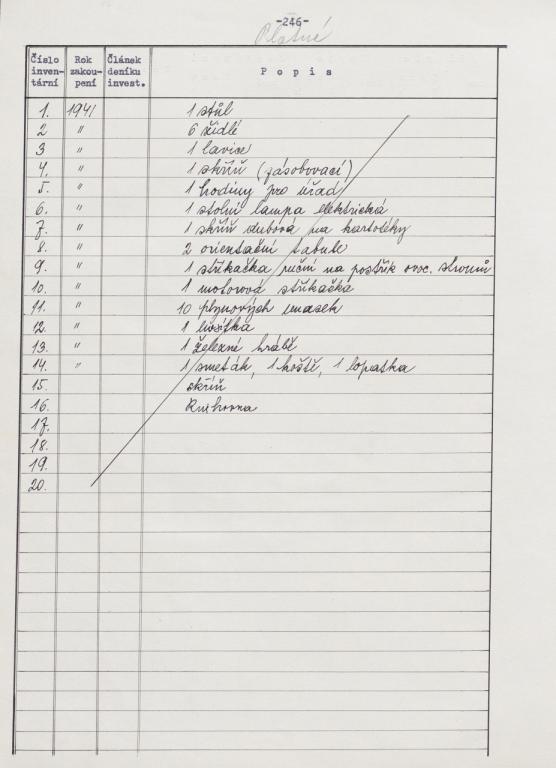 -246-
Platné
Číslo inven- tární
Rok zakou- pení
Článek deníku invest.
P o p i s
1. 1941 1 stůl
2 " 6 židlí
3 " 1 lavice
4. " 1 skříň (zásobovací)
5. " 1 hodiny pro úřad
6. " 1 stolní lampa elektrická
7. " 1 skříň dubová na kartotéky
8. " 2 orientační tabule
9. " 1 stříkačka ruční na postřik ovoc. stromů
10. " 1 motorová stříkačka
11. " 10 plynových masek
12. " 1
13. " 1 železné hrábě
14. " 1 smeták, 1 koště, 1 lopatka
15. skříň
16. Knihovna
17.
18.
19.
20.